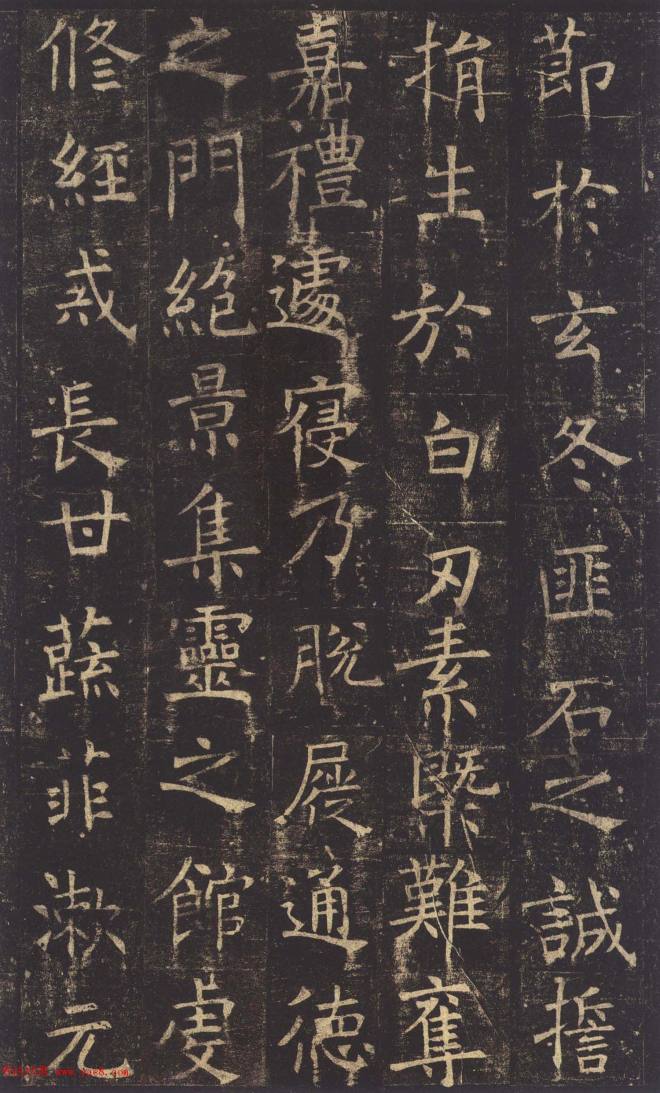 莭於玄冬匪石之誠擔
捐生於白刃素槩難奪
嘉禮遽寢乃脫屣通德
之門絶景集靈之館虔
修經戒長甘蔬菲漱元
www.yac8.com